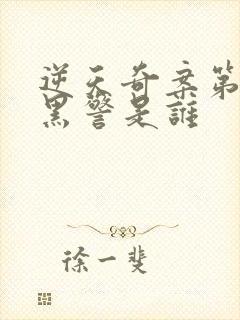 逆天奇案第
黑警是誰
徐一斐